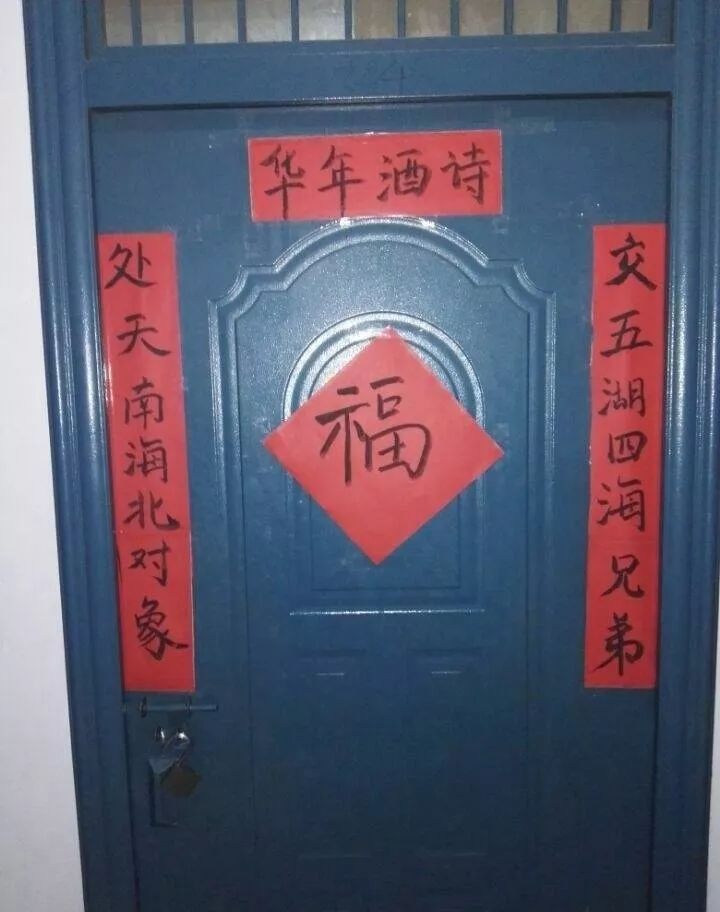 华年酒诗
交五湖四海兄弟
处天南海北对象
福